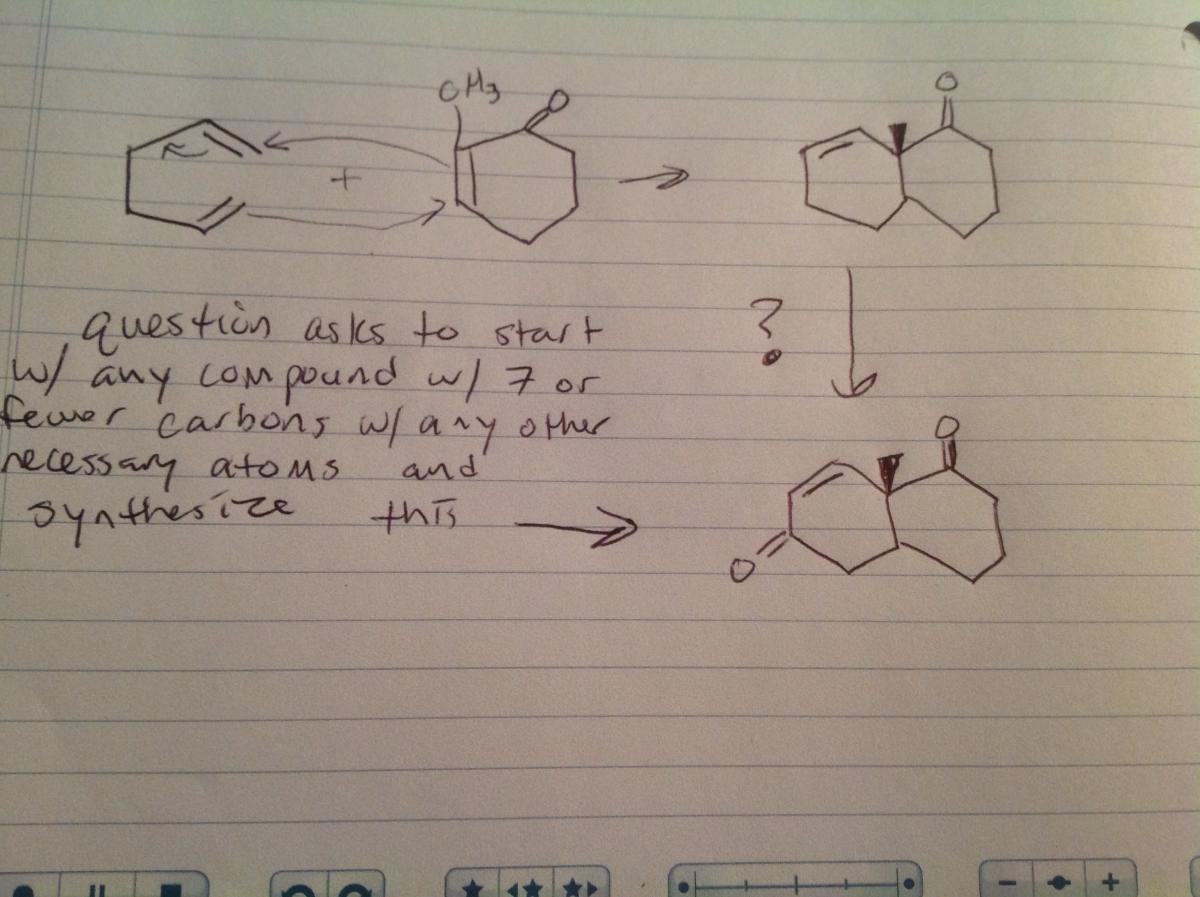 CH3
O
+
O
question asks to start
w/ any compound w/ 7 or
fewer carbons w/ any other
necessary atoms and
synthesize this
?
O
O